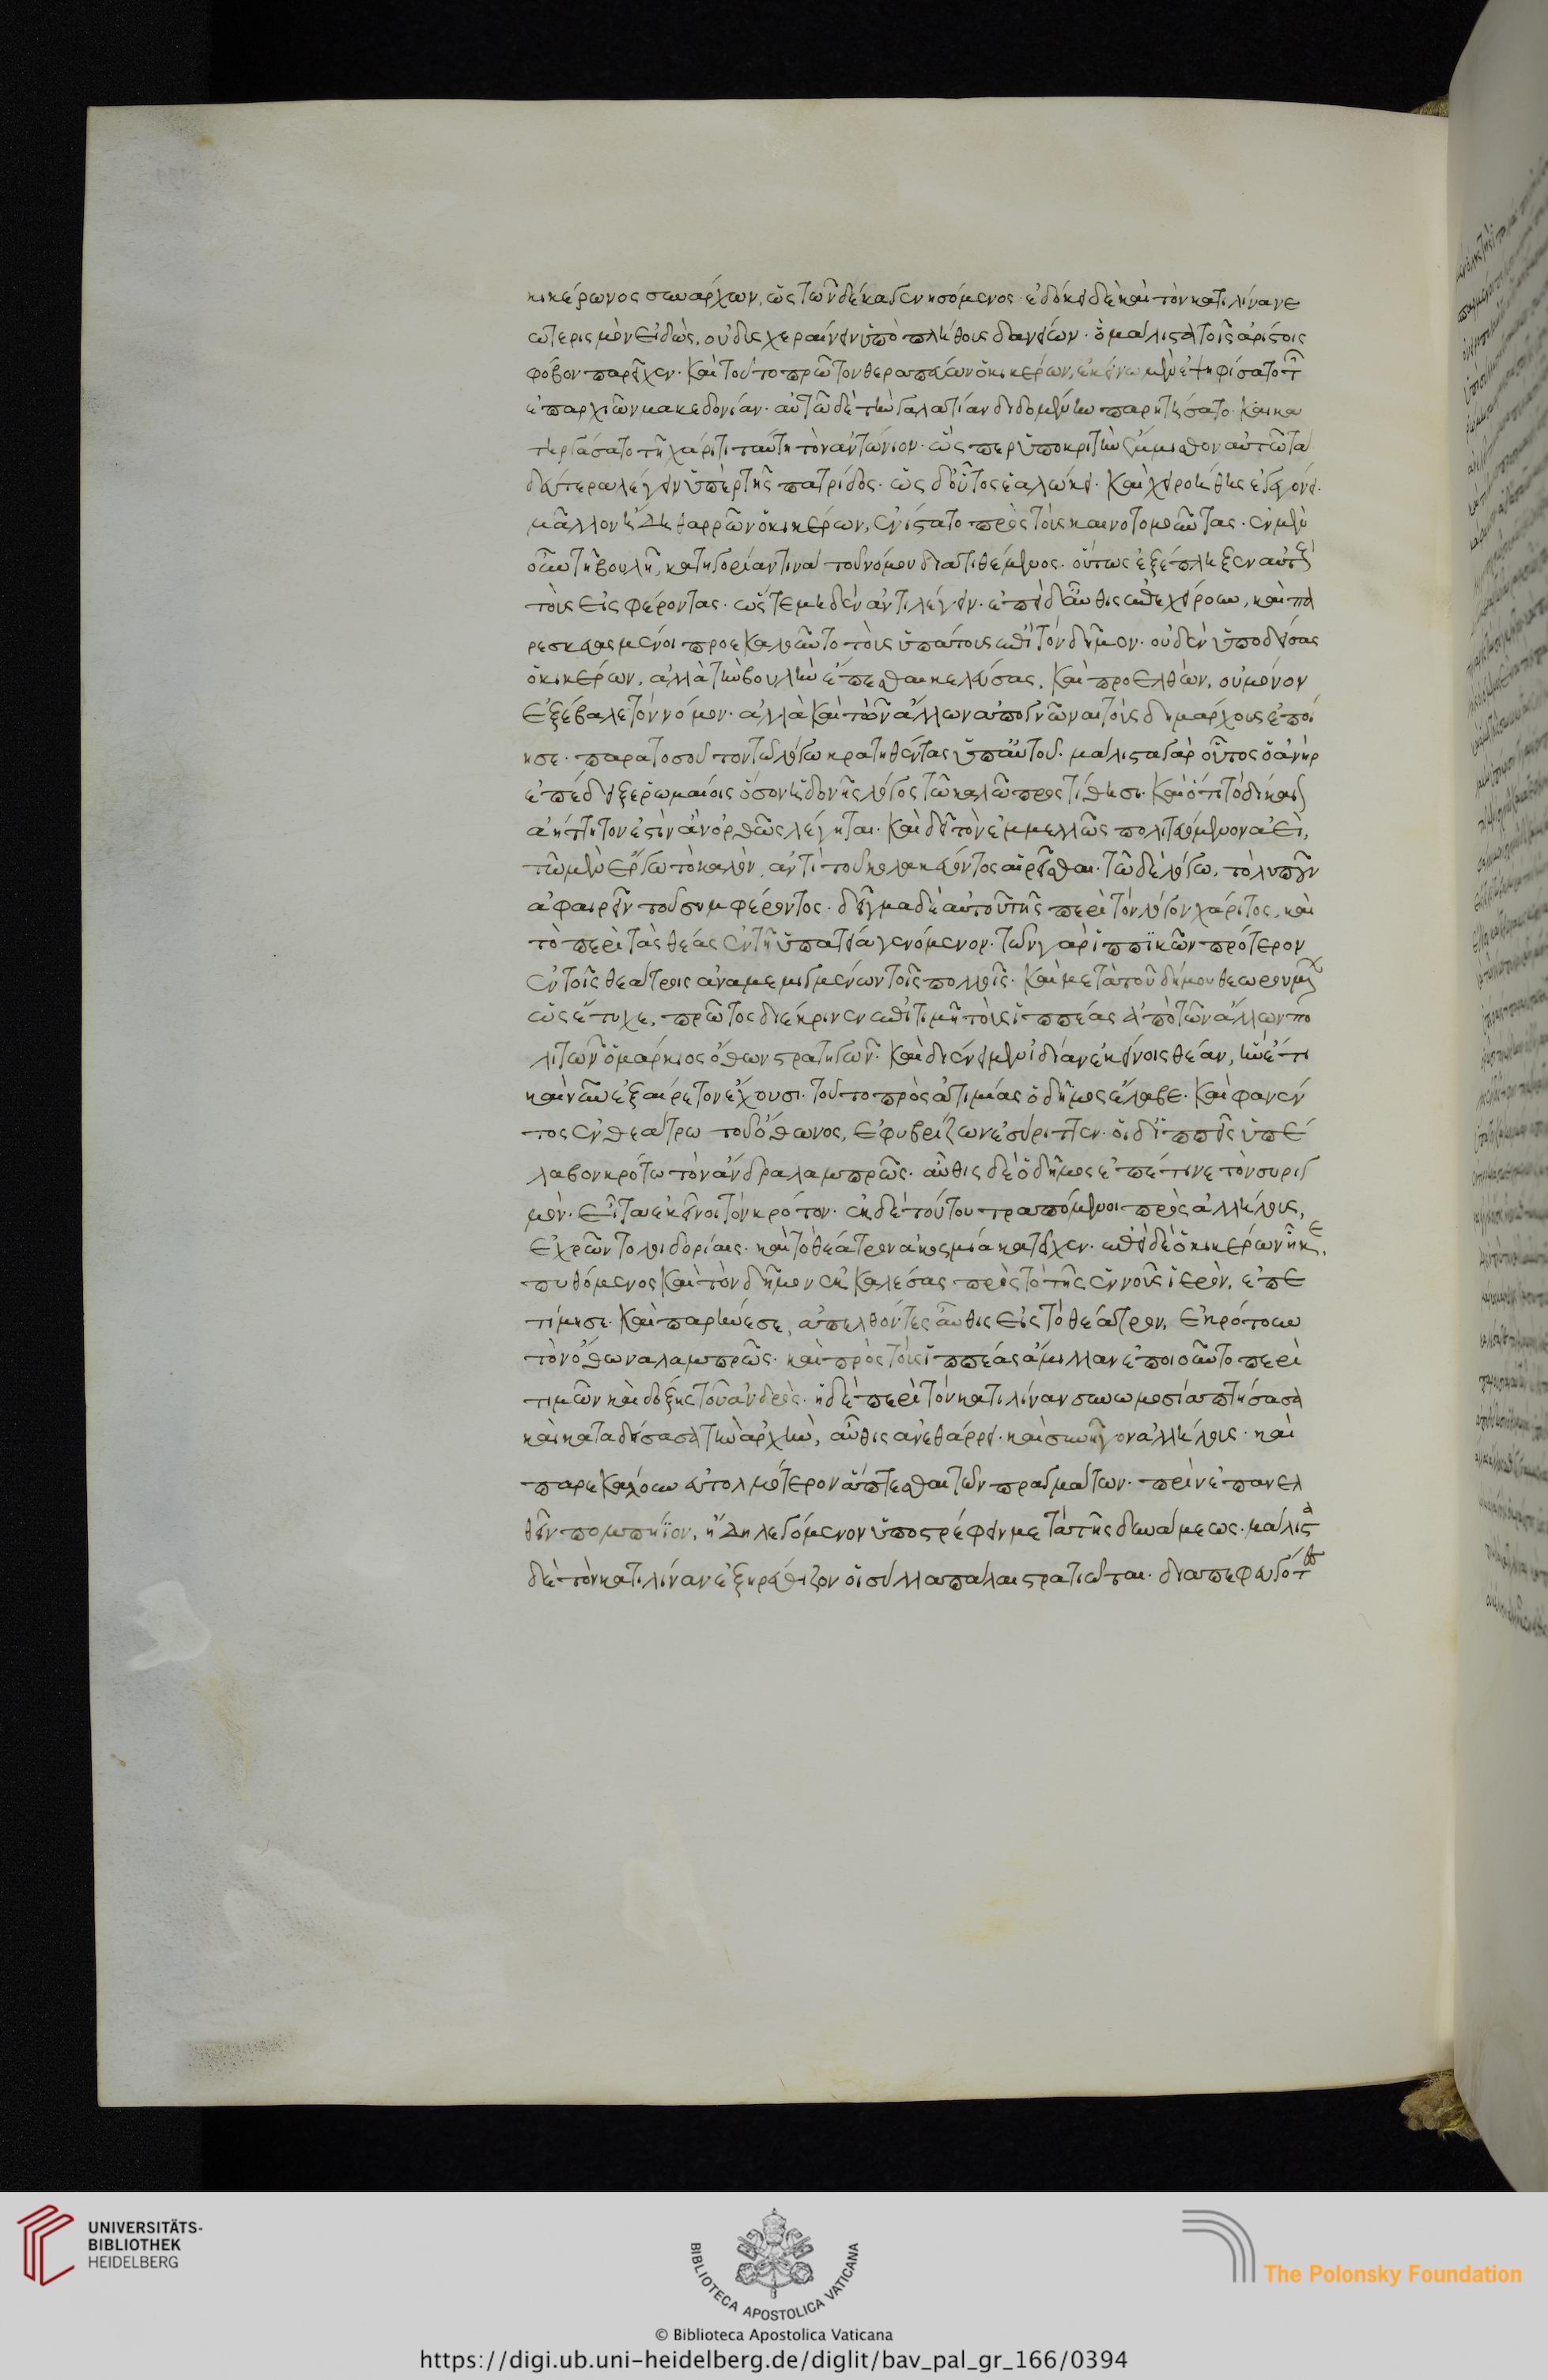 κικέρωνος συναρχων, ὡς τῶν δέκα γενησόμενος· ἐδόκει δὲ καὶ τὸν κατιλίνα νε
ωτερισμὸν εἰδὼς, οὐ δυσχεραίνειν ὑπὸ πλήθους δανείων· ὃ μάλιστα τοῖς ἀρίστοις
φόβον παρεῖχεν· καὶ τοῦτο πρῶτον θεραπεύων ὁ κικέρων, ἐκείνω μὲν ἐψηφίσατο τῶν
ἐπαρχιῶν μακεδονίαν· αὐτῶ δὲ τὴν γαλατίαν διδομένην παρητήσατο· καὶ κα
τειργάσατο τῆ χάριτι ταύτη τὸν ἀντώνιον· ὥσπερ ὑποκριτὴν ἔμμισθον αὐτῶ τὰ
δεύτερα λέγειν ὑπὲρ τῆς πατρίδος· ὡς δ' οὗτος ἑαλώκει· καὶ χειροήθης ἐγεγόνει·
μᾶλλον ἤδη θαρρῶν ὁ κικέρων, ἐνίστατο πρὸς τοὺς καινοτομοῦντας· ἐν μὲν
οὖν τῆ βουλῆ, κατηγορίαν τινὰ τοῦ νόμου διατιθέμενος· οὕτως ἐξέπληξεν αὐτοὺς
τοὺς εἰσφέροντας· ὥστε μηδὲν ἀντιλέγειν· ἐπεὶ δ' αὖθις ἐπεχείρουν, καὶ πα
ρεσκευασμένοι προεκαλοῦντο τοὺς ὑπάτους ἐπὶ τὸν δῆμον· οὐδὲν ὑποδείσας
ὁ κικέρων, ἀλλὰ τὴν βουλὴν ἕπεσθαι κελεύσας, καὶ προελθὼν, οὐ μόνον
ἐξέβαλε τὸν νόμον· ἀλλὰ καὶ τῶν ἄλλων ἀπογνῶναι τοὺς δημάρχους ἐποί
ησε· παρὰ τοσοῦτον τῶ λόγω κρατηθέντας ὑπ' αὐτοῦ· μάλιστα γὰρ οὗτος ὁ ἀνὴρ
ἐπέδειξε ῥωμαίοις ὅσον ἡδονῆς λόγος τῶ καλῶ προστίθησι· καὶ ὅτι τὸ δίκαιον
ἀήττητόν ἐστιν ἂν ὀρθῶς λέγηται· καὶ δεῖ τὸν ἐμμελῶς πολιτευόμενον ἀεὶ,
τῶ μὲν ἔργω τὸ καλὸν, ἀντὶ τοῦ κολακεύοντος αἱρεῖσθαι· τῶ δὲ λόγω, τὸ λυποῦν
ἀφαιρεῖν τοῦ συμφέροντος· δεῖγμα δὲ αὐτοῦ τῆς περὶ τὸν λόγον χάριτος, καὶ
τὸ περὶ τὰς θέας ἐν τῆ ὑπατεία γενόμενον· τῶν γὰρ ἱππϊκῶν πρότερον
ἐν τοῖς θεάτροις ἀναμεμιγμένων τοῖς πολλοῖς· καὶ μετὰ τοῦ δήμου θεωρουμένων
ὡς ἔτυχε, πρῶτος διέκρινεν ἐπὶ τιμῆ τοὺς ἱππέας ἀπὸ τῶν ἄλλων πο
λιτῶν ὁ μάρκιος ὄθων στρατηγῶν· καὶ διένειμεν ἰδίαν ἐκείνοις θέαν, ἣν ἔτι
καὶ νῦν ἐξαίρετον ἔχουσι· τοῦτο πρὸς ἀτιμίας ὁ δῆμος ἔλαβε· καὶ φανέν
τος ἐν θεάτρω τοῦ ὄθωνος, ἐφυβρίζων ἐσύριττεν· οἱ δ' ἱππεῖς ὑπέ
λαβον κρότω τὸν ἄνδρα λαμπρῶς· αὖθις δὲ ὁ δῆμος ἐπέτεινε τὸν συριγ
μόν· εἶτα ἐκεῖνοι τὸν κρότον· ἐκ δὲ τούτου τραπόμενοι πρὸς ἀλλήλους,
ἐχρῶντο λοιδορίαις· καὶ τὸ θέατρον ἀκοσμία κατεῖχεν· ἐπεὶ δὲ ὁ κικέρων ἧκε,
πυθόμενος καὶ τὸν δῆμον ἐκκαλέσας πρὸς τὸ τῆς ἐννοῦς ἱερὸν, ἐπε
τίμησε· καὶ παρήνεσε, ἀπελθόντες αὖθις εἰς τὸ θέατρον, ἐκρότουν
τὸν ὄθωνα λαμπρῶς· καὶ πρὸς τοὺς ἱππέας ἅμιλλαν ἐποιοῦντο περὶ
τιμῶν καὶ δόξης τοῦ ἀνδρὸς· ἡ δὲ περὶ τὸν κατιλίναν συνωμοσία πτήσασα
καὶ καταδείσασα τὴν ἀρχὴν, αὖθις ἀνεθάρρει· καὶ συνῆγον ἀλλήλους· καὶ
παρεκάλουν εὐτολμότερον ἅπτεσθαι τῶν πραγμάτων· πρὶν ἐπανελ
θεῖν πομπήϊον, ἤδη λεγόμενον ὑποστρέφειν μετὰ τῆς δυνάμεως· μάλιστα
δὲ τὸν κατιλίναν ἐξηρέθιζον οἱ σύλλα πάλαι στρατιῶται· διαπεφευγότες